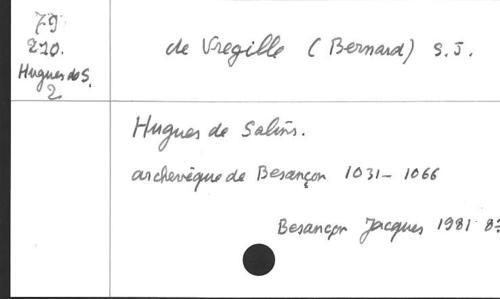 79
210.
Hugues de S.
2
de Vregille (Bernard) S.J.
Hugues de Salins.
archevêque de Besançon 1031-1066
Besançon Jacques 1981 8